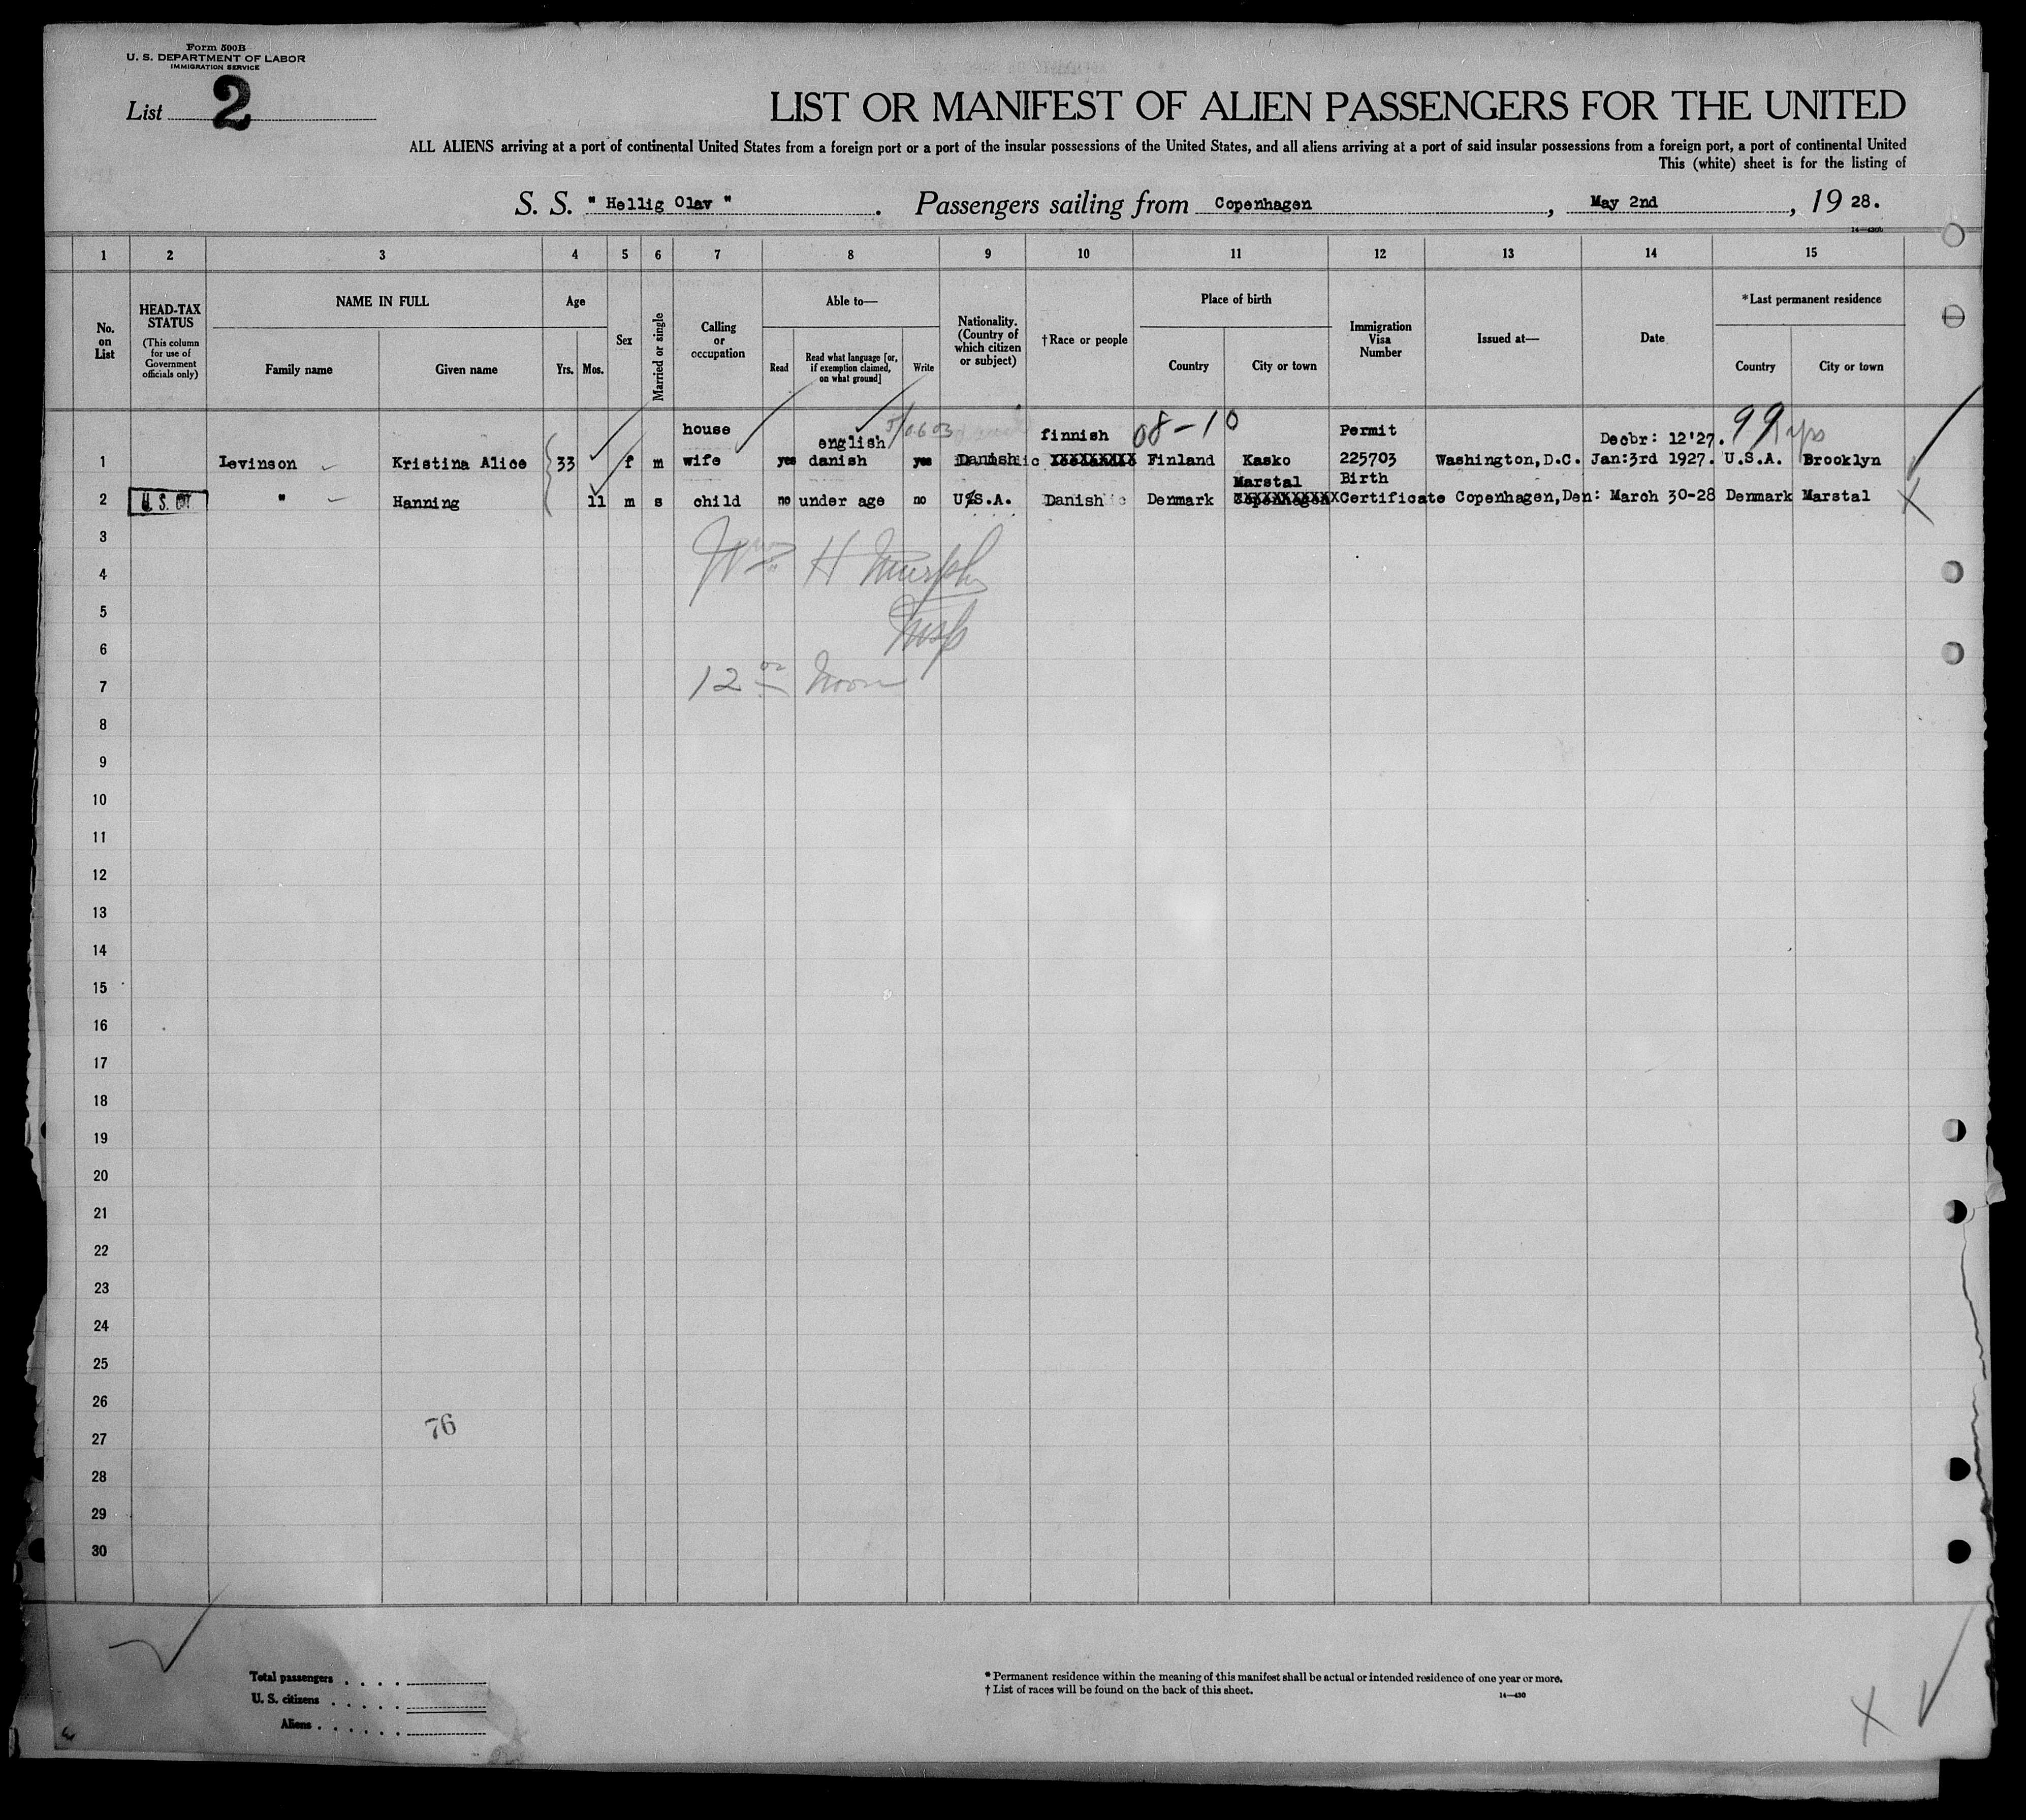 Form 500B
U. S. DEPARTMENT OF LABOR
IMMIGRATION SERVICE
List 2
LIST OR MANIFEST OF ALIEN PASSENGERS FOR THE UNITED
ALL ALIENS arriving at a port of continental United States from a foreign port or a port of the insular possessions of the United States, and all aliens arriving at a port of said insular possessions from a foreign port, a port of continental United
This (white) sheet is for the listing of
S. S. " Hellig Olav " . Passengers sailing from Copenhagen , May 2nd , 19 28.
1 2 3 4 5 6 7 8 9 10 11 12 13 14 15
No. on List
HEAD-TAX STATUS (This column for use of Government officials only)
NAME IN FULL
Family name Given name
Age
Yrs. Mos.
Sex
Married or single
Calling or occupation
Able to—
Read Read what language [or, if exemption claimed, on what ground] Write
Nationality. (Country of which citizen or subject)
†Race or people
Place of birth
Country City or town
Immigration Visa Number
Issued at—
Date
*Last permanent residence
Country City or town
house english finnish 08-10 Permit Decbr: 12'27. 99
1 Levinson Kristina Alice 33 f m wife yes danish yes Danish Finland Kasko 225703 Washington,D.C. Jan:3rd 1927. U.S.A. Brooklyn
Marstal Birth
2 U.S. " Hanning 11 m s child no under age no U.S.A. Danish Denmark Copenhagen Certificate Copenhagen,Den: March 30-28 Denmark Marstal
3
4 Wm H Murphy
5
6 Insp
7 12 00 Noon
8
9
10
11
12
13
14
15
16
17
18
19
20
21
22
23
24
25
26
76
27
28
29
30
Total passengers
U. S. citizens
Aliens
* Permanent residence within the meaning of this manifest shall be actual or intended residence of one year or more.
† List of races will be found on the back of this sheet.
14—430